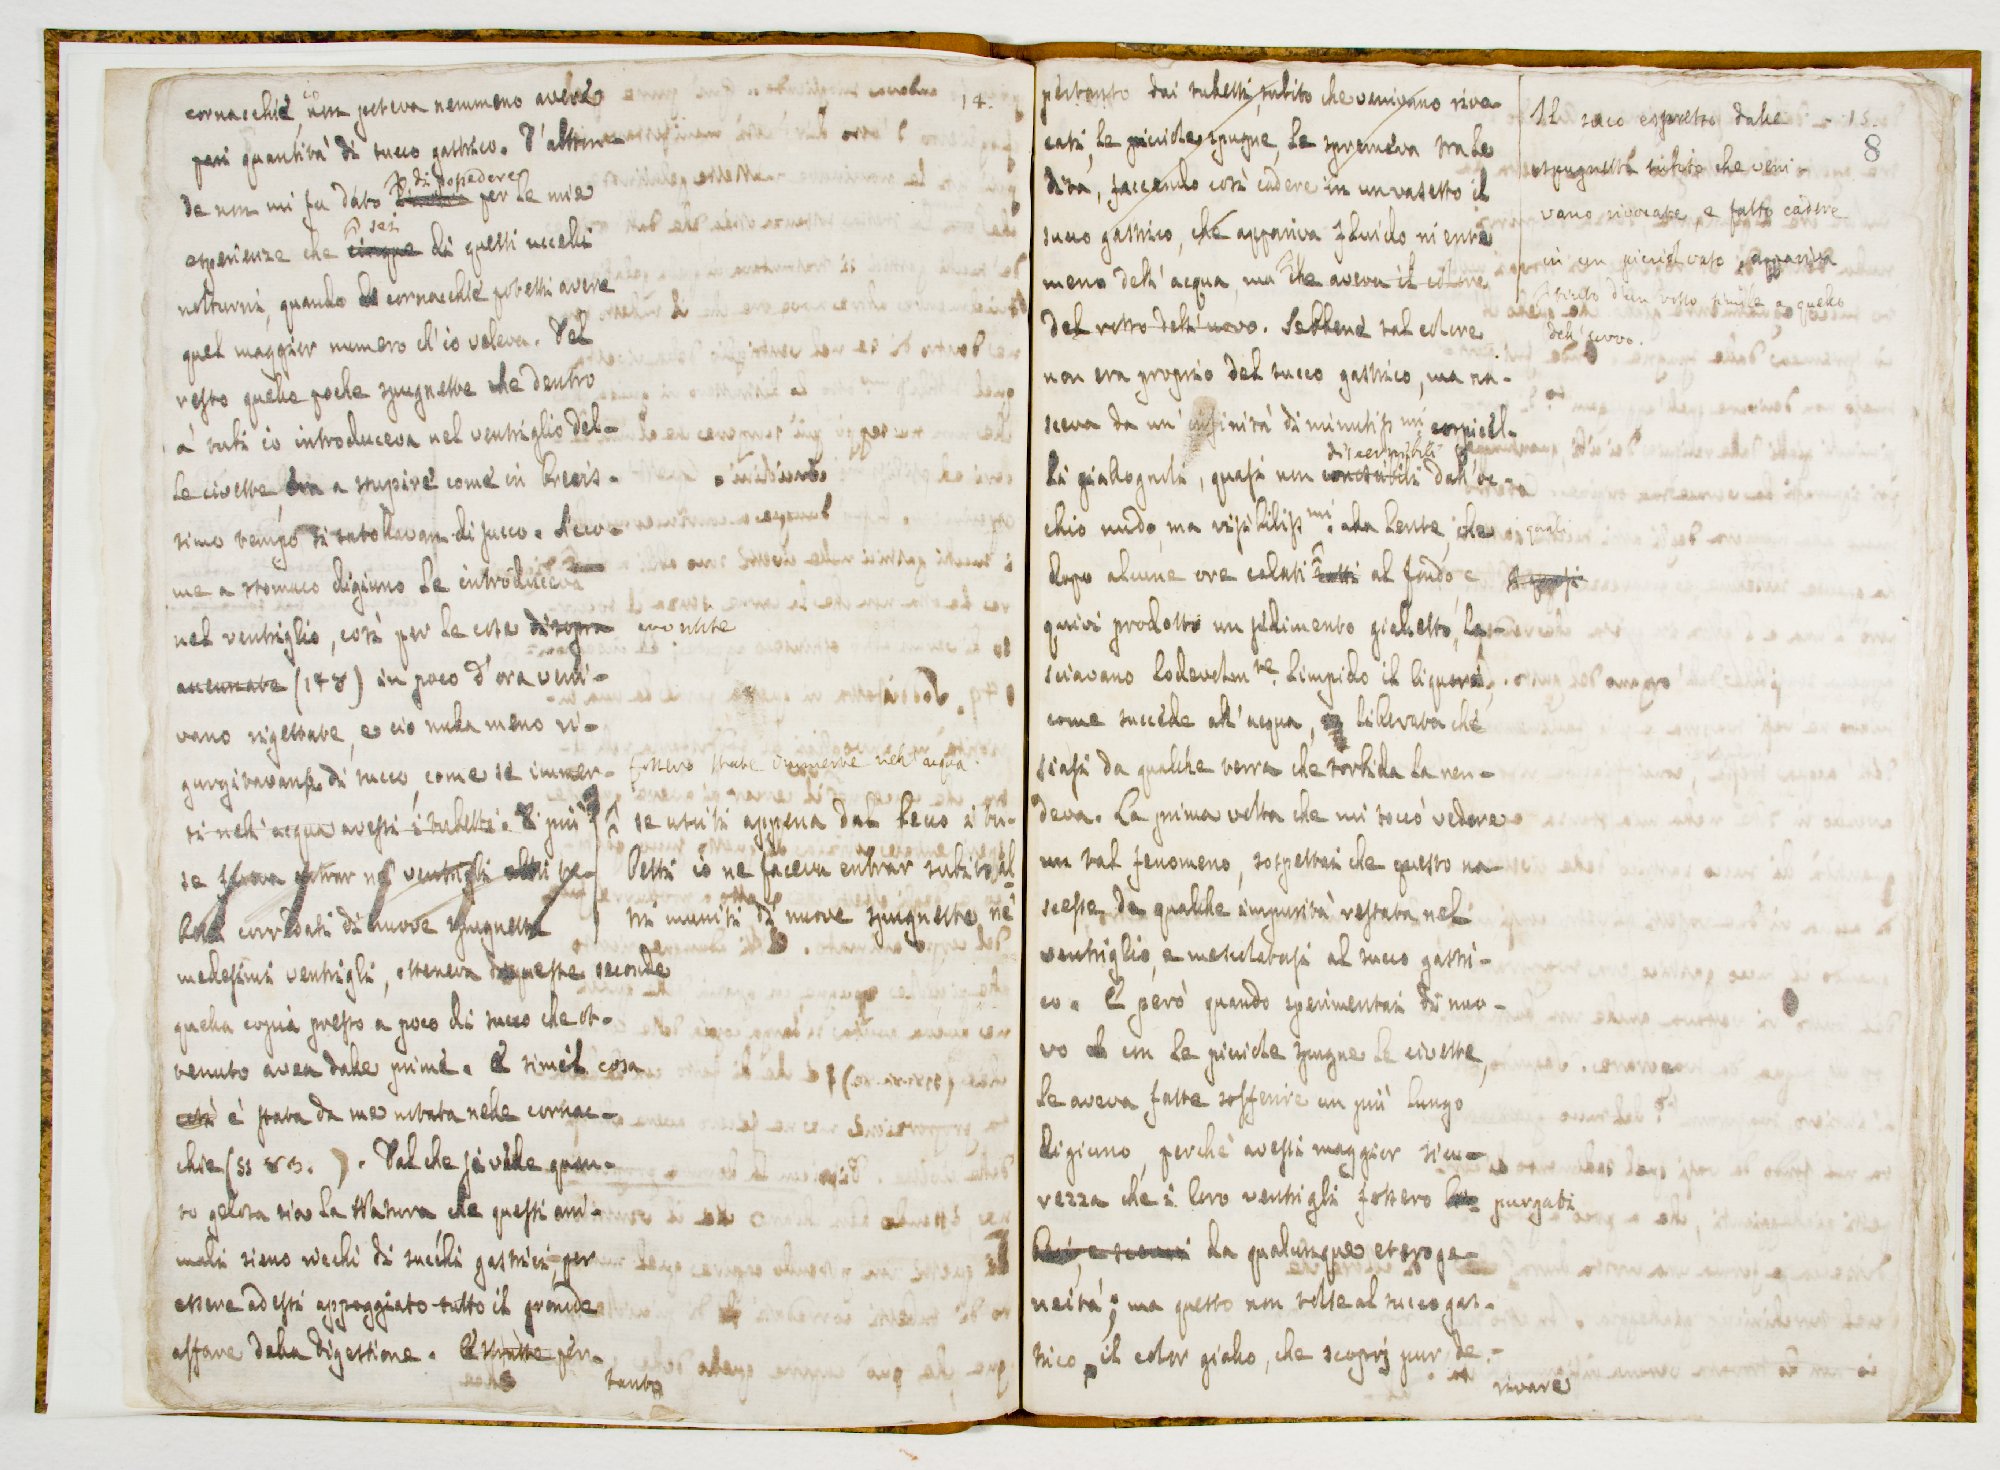 14.
cornacchie, non poteva nemmeno averlo
pari quantità di succo gastrico. D'altron-
di possedere
de non mi fu dato per le mie
sei
esperienze che cinque di questi uccelli
notturni, quando le cornacchie potessi avere
quel maggior numero ch'io voleva. Del
resto quelle poche spugnette che dentro
a tubi io introduceva nel ventriglio del-
le civette, a stupire come in brevis-
simo tempo si satollavan di succo. Sicco-
me a stomaco digiuno le introduceva
nel ventriglio, così per le cose di sopra
accennate (178) in poco d'ora veni-
vano rigettate, e ciò nulla meno ri-
gurgitavan di succo, come se immer-
fossero state immerse nell'acqua.
si nell'acqua avessi i tubetti. E più
se usciti appena dal becco i tu-
betti io ne faceva entrar subito al-
tri muniti di nuove spugnette ne'
se faceva entrar ne' ventrigli altri tu-
corredati di nuove spugnette
medesimi ventrigli, otteneva da queste seconde
quella copia presso a poco di succo che ot-
tenuto avea dalle prime. E simil cosa
così è stata da me notata nelle cornac-
chie (83. ). Dal che si vede quan-
to gelosa sia la Natura che questi ani-
mali sieno ricchi di succhi gastrici, per
essere ad essi appoggiato tutto il grande
affare della digestione. Estratte per-
tanto
15.
8
pertanto dai tubetti, subito che venivano rive-
cati, le picciole spugne, le spremeva tra le
dita, facendo così cadere in un vasetto il
succo gastrico, che appariva fluido niente
meno dell'acqua, ma che aveva il colore
del rosso dell'uovo. Sebbene tal colore
non era proprio del succo gastrico, ma na-
sceva da un' infinità di minutissmi corpicel-
discernibili
li giallognoli, quasi non dall'oc-
chio nudo, ma visibilissmi alla lente, che
i quali
dopo alcune ore calati tutti al fondo, e
quivi prodotto un sedimento gialletto, la-
sciavano lodevolmte limpido il liquore,
come succede all'acqua, liberata che
siasi da qualche terra che torbida la ren-
deva. La prima volta che mi toccò vedere
un tal fenomeno, sospettai che questo na-
scesse da qualche impurità restata nel
ventriglio, e mescolatasi al succo gastri-
co. E però quando sperimentai di nuo-
vo con le picciole spugne le civette,
le aveva fatte soffrire un più lungo
digiuno, perchè avessi maggior sicu-
rezza che i loro ventrigli fossero purgati
da qualunque eteroge-
neità; ma questo non tolse al succo gas-
trico il color giallo, che scoprj pur de-
rivare
Il succo espresso dalle
spugnette subito che veni
vano rivocate, e fatto cadere
in un picciol vaso, appariva
fluido d'un rosso simile a quello
dell'uovo.